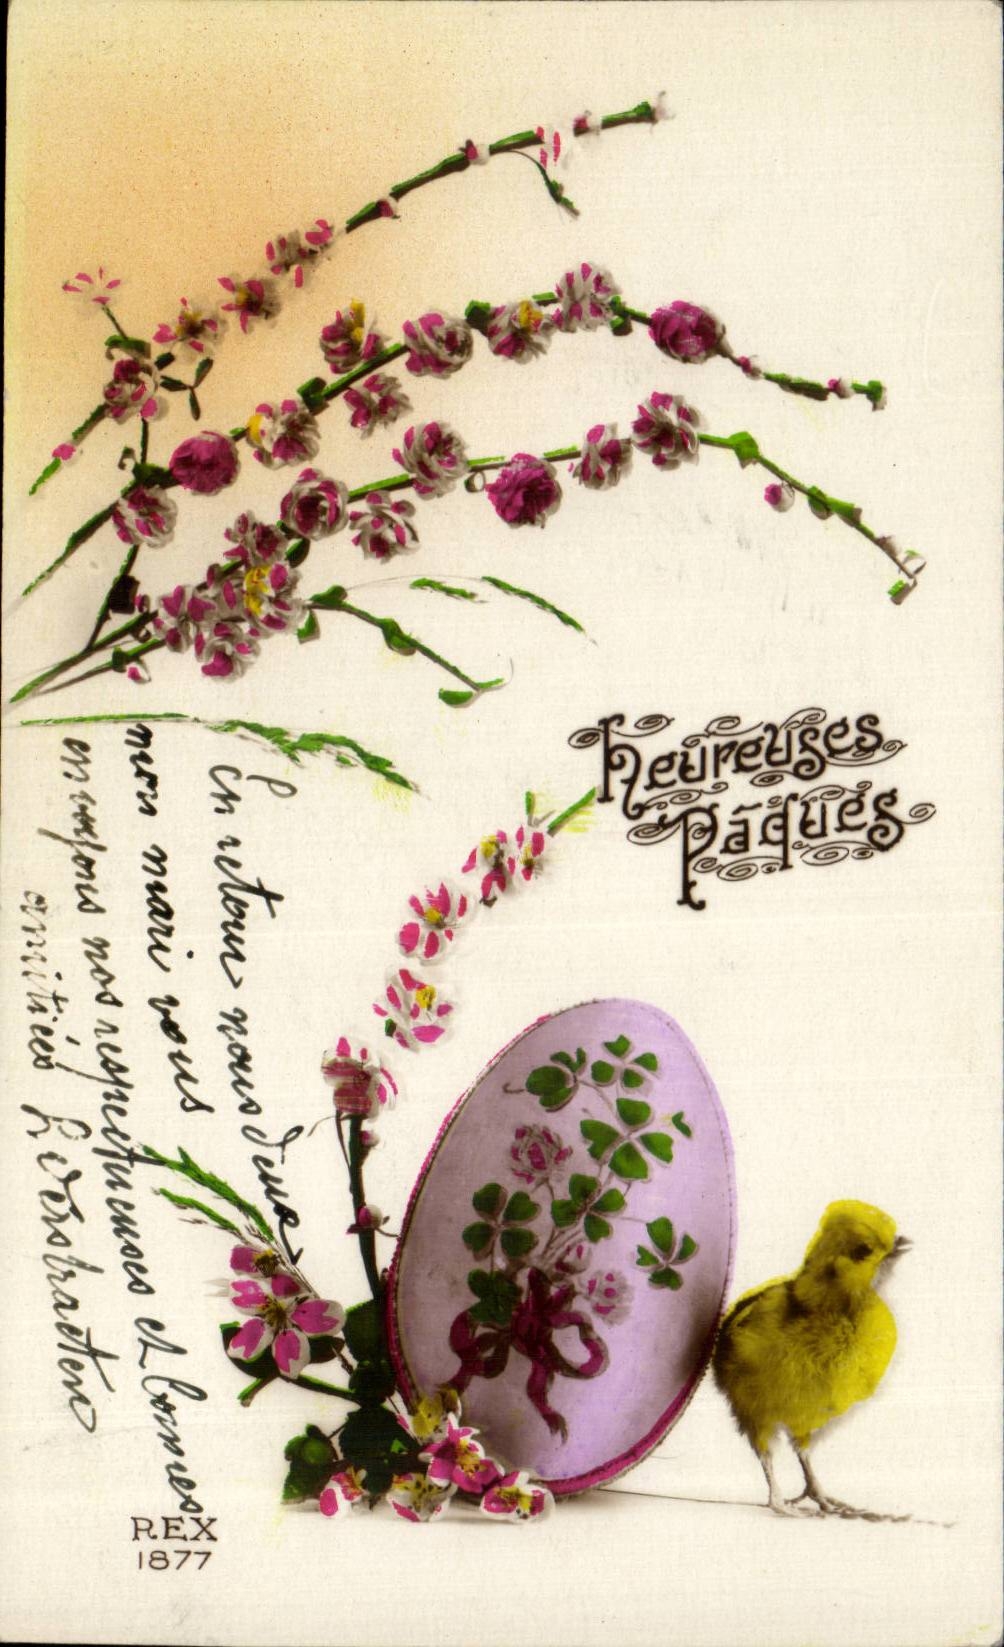 heureuses
Pâques
En retour nous deux
mon mari vous
envoyons nos respectueuses et bonnes
amitiés L Verstraeten
REX
1877